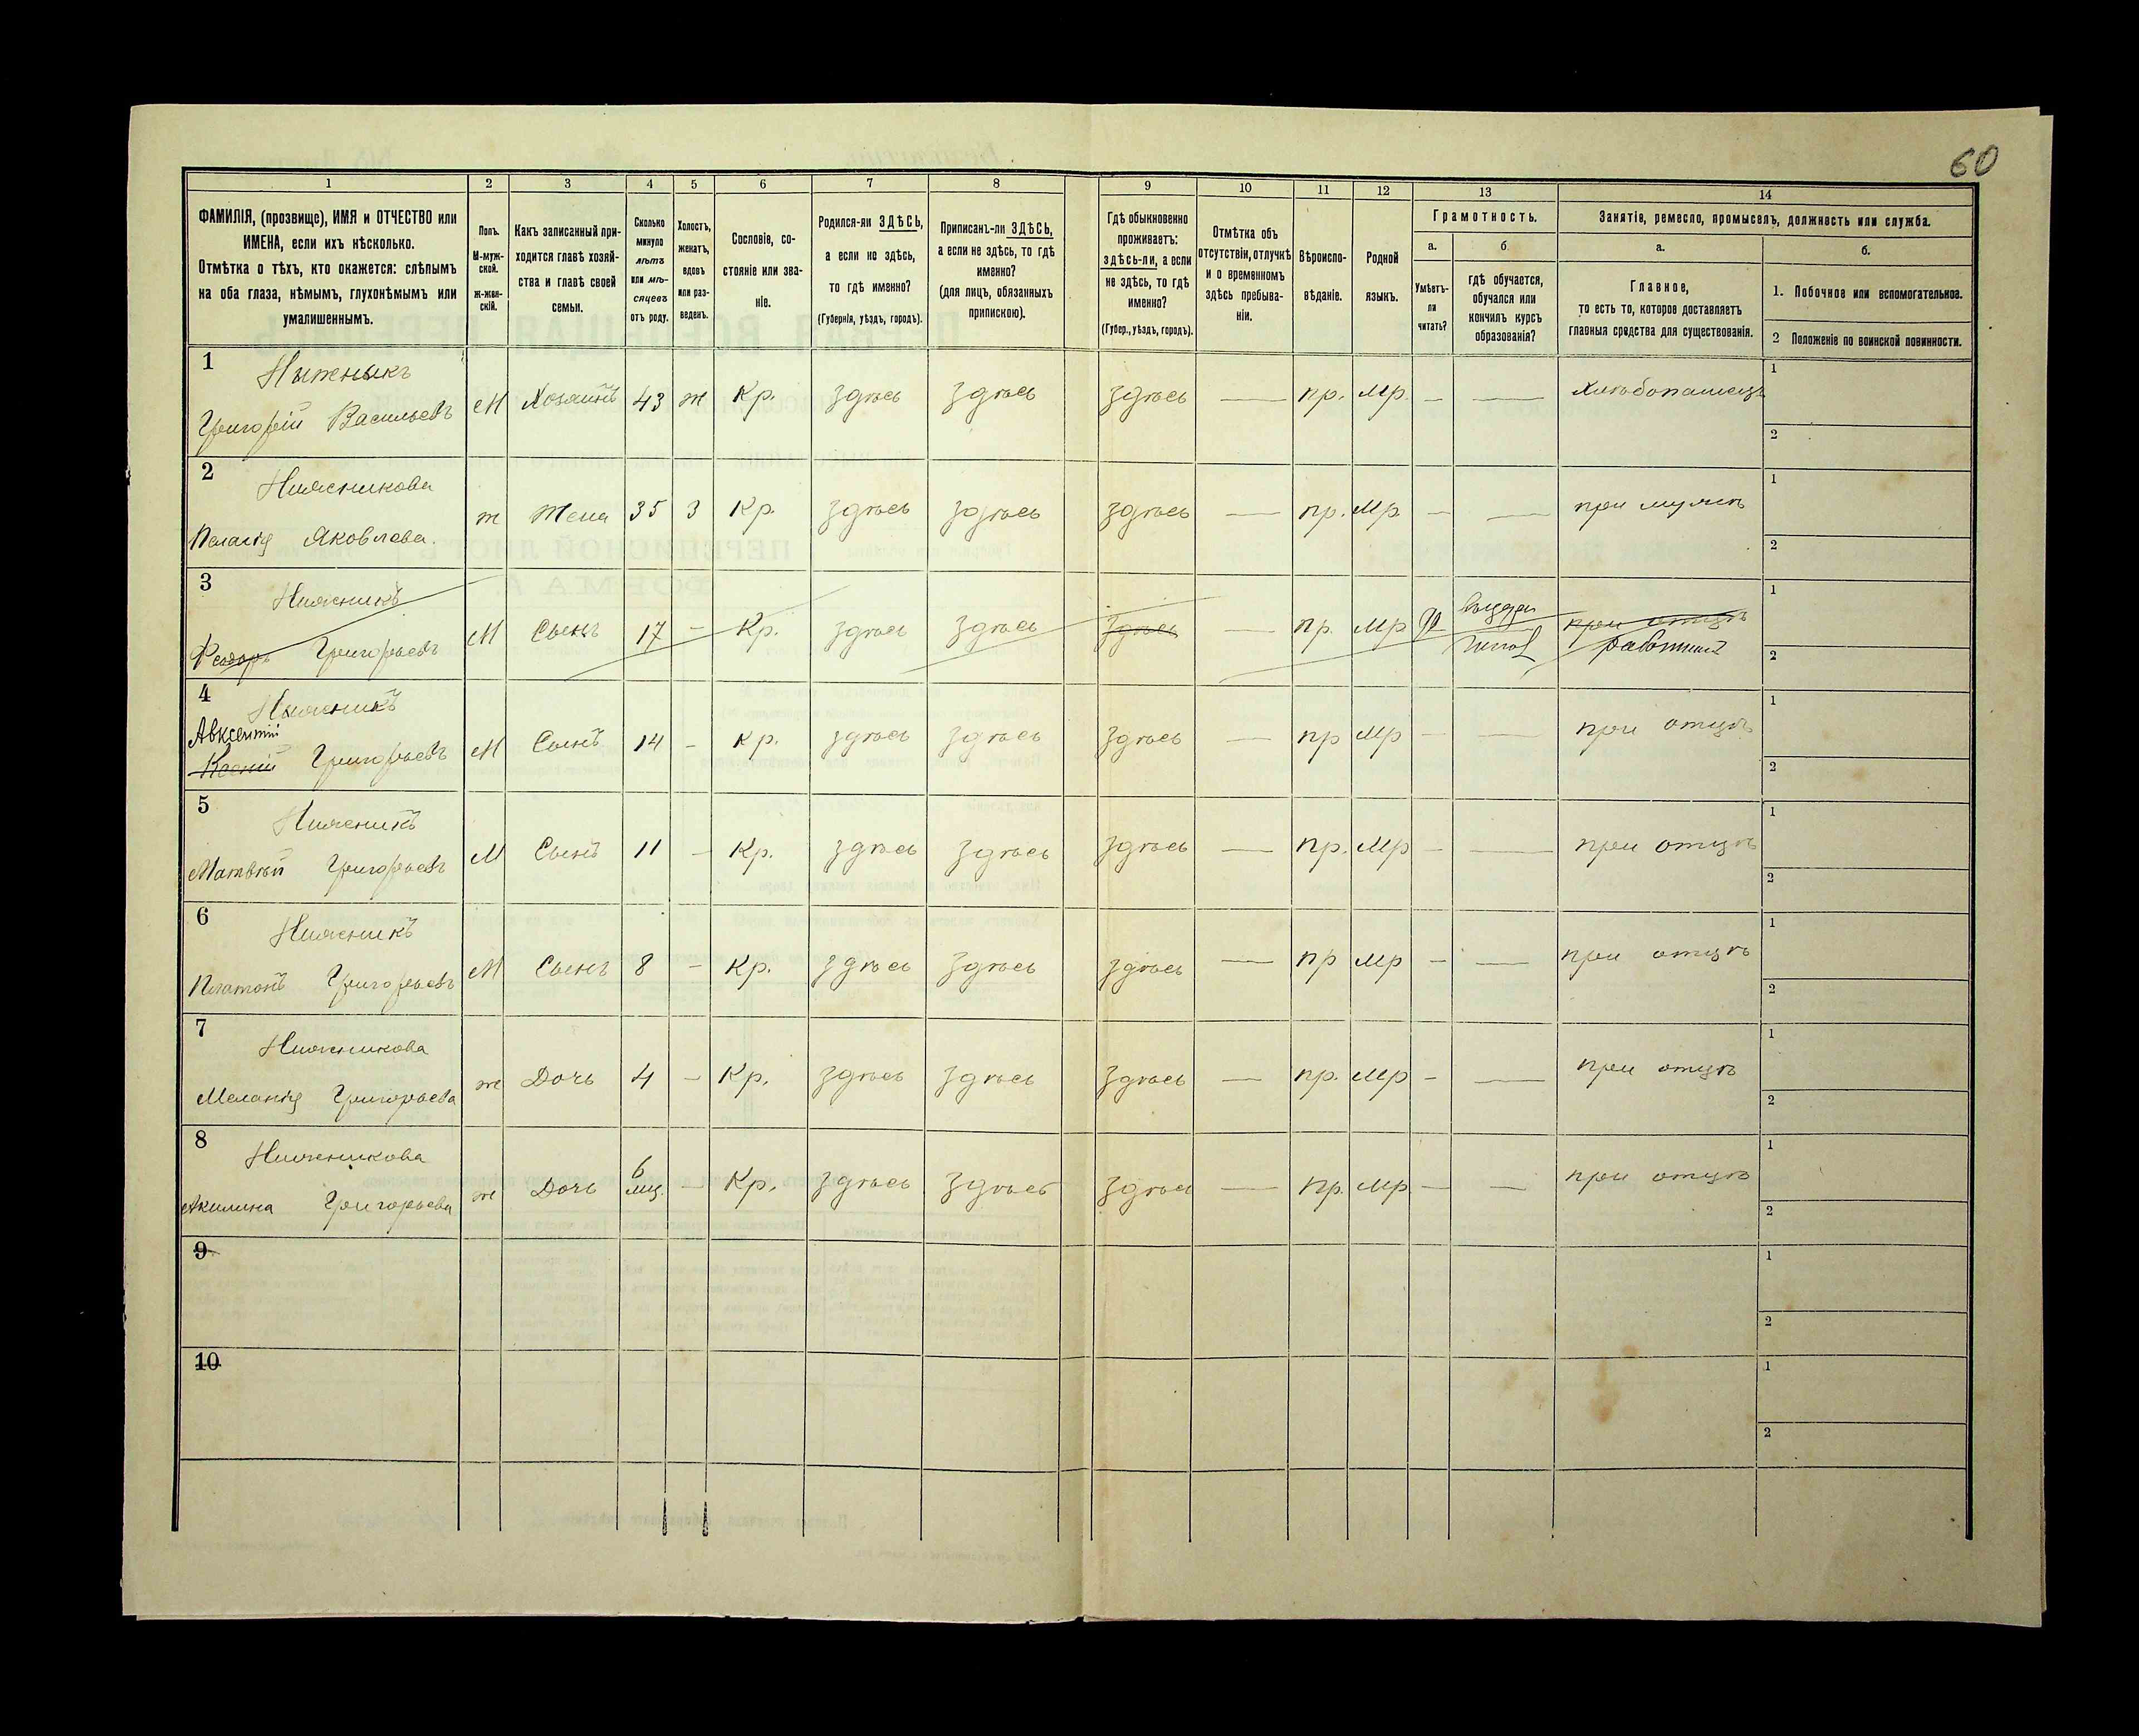 60
1 2 3 4 5 6 7 8 9 10 11 12 13 14
ФАМИЛІЯ, (прозвище), ИМЯ и ОТЧЕСТВО или
ИМЕНА, если ихъ нѣсколько.
Отмѣтка о тѣхъ, кто окажется: слѣпымъ
на оба глаза, нѣмымъ, глухонѣмымъ или
умалишеннымъ.
Полъ.
М-муж-
ской.
ж-жен-
скій.
Какъ записанный при-
ходится главѣ хозяй-
ства и главѣ своей
семьи.
Сколько
минуло
лѣтъ
или мѣ-
сяцевъ
отъ роду.
Холостъ,
женатъ,
вдовъ
или раз-
веденъ.
Сословіе, со-
стояніе или зва-
ніе.
Родился-ли ЗДѢСЬ,
а если не здѣсь,
то гдѣ именно?
(Губернія, уѣздъ, городъ).
Приписанъ-ли ЗДѢСЬ,
а если не здѣсь, то гдѣ
именно?
(для лицъ, обязанныхъ
припискою).
Гдѣ обыкновенно
проживаетъ:
здѣсь-ли, а если
не здѣсь, то гдѣ
именно?
(Губер., уѣздъ, городъ).
Отмѣтка объ
отсутствіи, отлучкѣ
и о временномъ
здѣсь пребыва-
ніи.
Вѣроиспо-
вѣданіе.
Родной
языкъ.
Грамотность.
а.
Умѣетъ-
ли
читать?
б
гдѣ обучается,
обучался или
кончилъ курсъ
образованія?
Занятіе, ремесло, промыселъ, должность или служба.
а.
Главное,
то есть то, которое доставляетъ
главныя средства для существованія.
б.
1. Побочное или вспомогательное.
2 Положеніе по воинской повинности.
1
Ныжныкъ
Григорій Васильевъ М Хозяинъ 43 ж Кр. здѣсь здѣсь здѣсь — пр. Мр. — — Хлѣбопашецъ
1
2
2
Нижникова
Пелагія Яковлева. ж Жена 35 З Кр. здѣсь здѣсь здѣсь — пр. Мр. — — при мужѣ
1
2
3
Нижникъ
Феодоръ Григорьевъ М Сынъ 17 — Кр. здѣсь здѣсь здѣсь — пр. Мр при отцѣ
работник
1
2
4
Нижникъ
Авксентій
Григорьевъ М Сынъ 14 — Кр. здѣсь здѣсь здѣсь — пр Мр — — при отцѣ
1
2
5
Нижникъ
Матвѣй Григорьевъ М Сынъ 11 — Кр. здѣсь здѣсь здѣсь — пр. Мр — — при отцѣ
1
2
6
Нижникъ
Платонъ Григорьевъ М Сынъ 8 — Кр. здѣсь здѣсь здѣсь — пр Мр — — при отцѣ
1
2
7
Нижникова
Меланія Григорьева ж Дочь 4 — Кр. здѣсь здѣсь здѣсь — пр. Мр — — при отцѣ
1
2
8
Нижникова
Акилина Григорьева ж Дочь 6 мц. — Кр. здѣсь здѣсь здѣсь — пр. Мр. — — при отцѣ
1
2
9
1
2
10
1
2